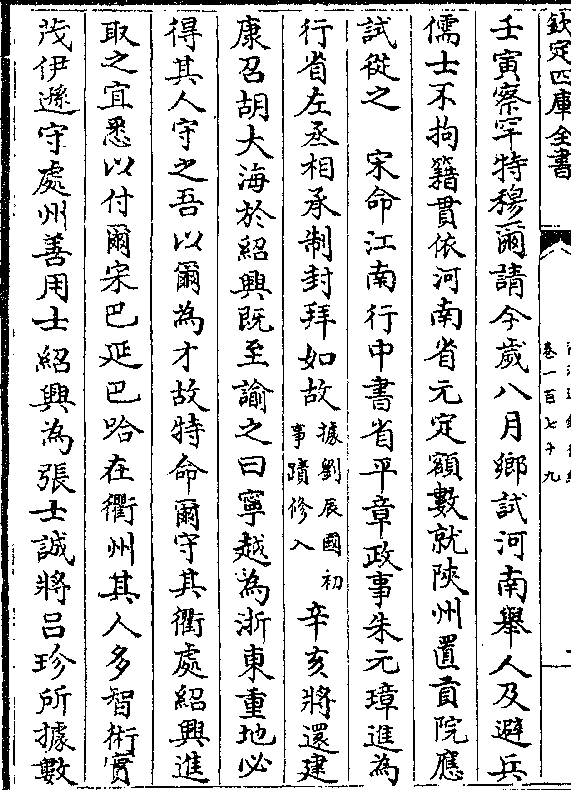 欽定四庫全書
卷一百七十九
壬寅察罕特穆爾請今歲八月鄉試河南舉人及避兵
儒士不拘籍貫依河南省元定額數就陝州置貢院應
試從之　宋命江南行中書省平章政事朱元璋進為
行省左丞相承制封拜如故據劉辰國初事蹟修入　辛亥將還建
康召胡大海於紹興既至諭之曰寧越為浙東重地必
得其人守之吾以爾為才故特命爾守其衢處紹興進
取之宜悉以付爾宋巴延巴哈在衢州其人多智術實
茂伊遜守處州善用士紹興為張士誠將呂珍所據數